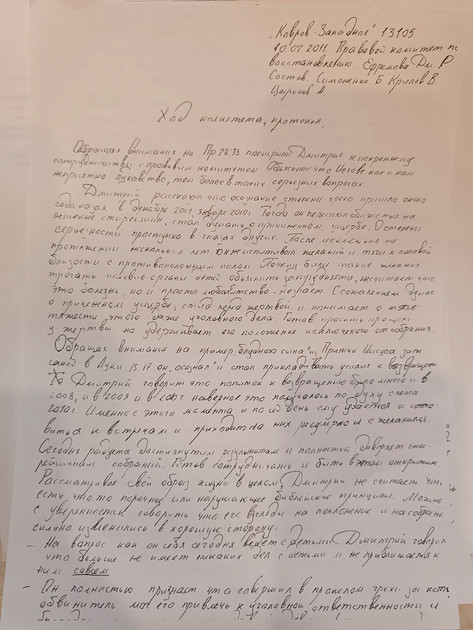 „Ковров-Западное" 13105
10.07.2011 Правовой комитет по
восстановлению Ефремова Дм. Р
Состав: Симоненко Б Крылов В.
Цырыгов А.
Ход комитета, протокол.
Обращая внимание на Пр 28:13 построить Дмитрия к искреннему
сотрудничеству с правовым комитетом Объяснить что Иегове как и нам
неприятно лукавство, тем более в таких серьезных вопросах
Дмитрий рассказал что осознание степени греха пришло около
года назад в декабре 2009 январе 2010.
решение старейшин, стал думать о причиненном ущербе. О степени
серьезности проступка в глазах других. После исключения на
протяжении нескольких лет он же испытывал желания и тяги к половой
близости с противоположным полом. Почему были такие желания
трогать половые органы детей объяснить затрудняется, не считает что
это болезнь но и просто любопытство - не назвать. С сожалением думает
о причиненном ущербе, стыд перед жертвой и понимает о
тяжести этого даже уголовного дела. Готов просить прощения
у жертвы но удерживает его положение исключеного от собрания.
Обращая внимание на пример „блудного сына" из Притчи Иисуса
Луки 15:17 он „осознал" и стал прикладывать усилия к возвращ
Дмитрий говорит что попыток к возвращению было много и в
2008, и в 2009 и в 2007 наверное что получалось по духу с лета
2010г Именно с этого момента и по сей день следует и гото-
виться к встречам и приходит на них регулярно и с желанием.
Сегодня радуется достигнутым результатам и полностью доверяет ста-
рейшинам собраний. Готов сотрудничать и быть в этом открытым.
Рассматривая свой образ жизни в целом, Дмитрий не считает что
есть что-то порочное или нарушающее библейские принципы. Может
с уверенностью говорить что его взгляды на поклонение и на собрание
сильно изменились в хорошую сторону.
- На вопрос как он себя сегодня ведет с детьми Дмитрий говорил
что больше не имеет никаких дел с детьми и не приближается к
ним совсем
- Он полностью признает что совершил в прошлом грехи за которые
обвинитель мог его привлечь к уголовной ответственности и